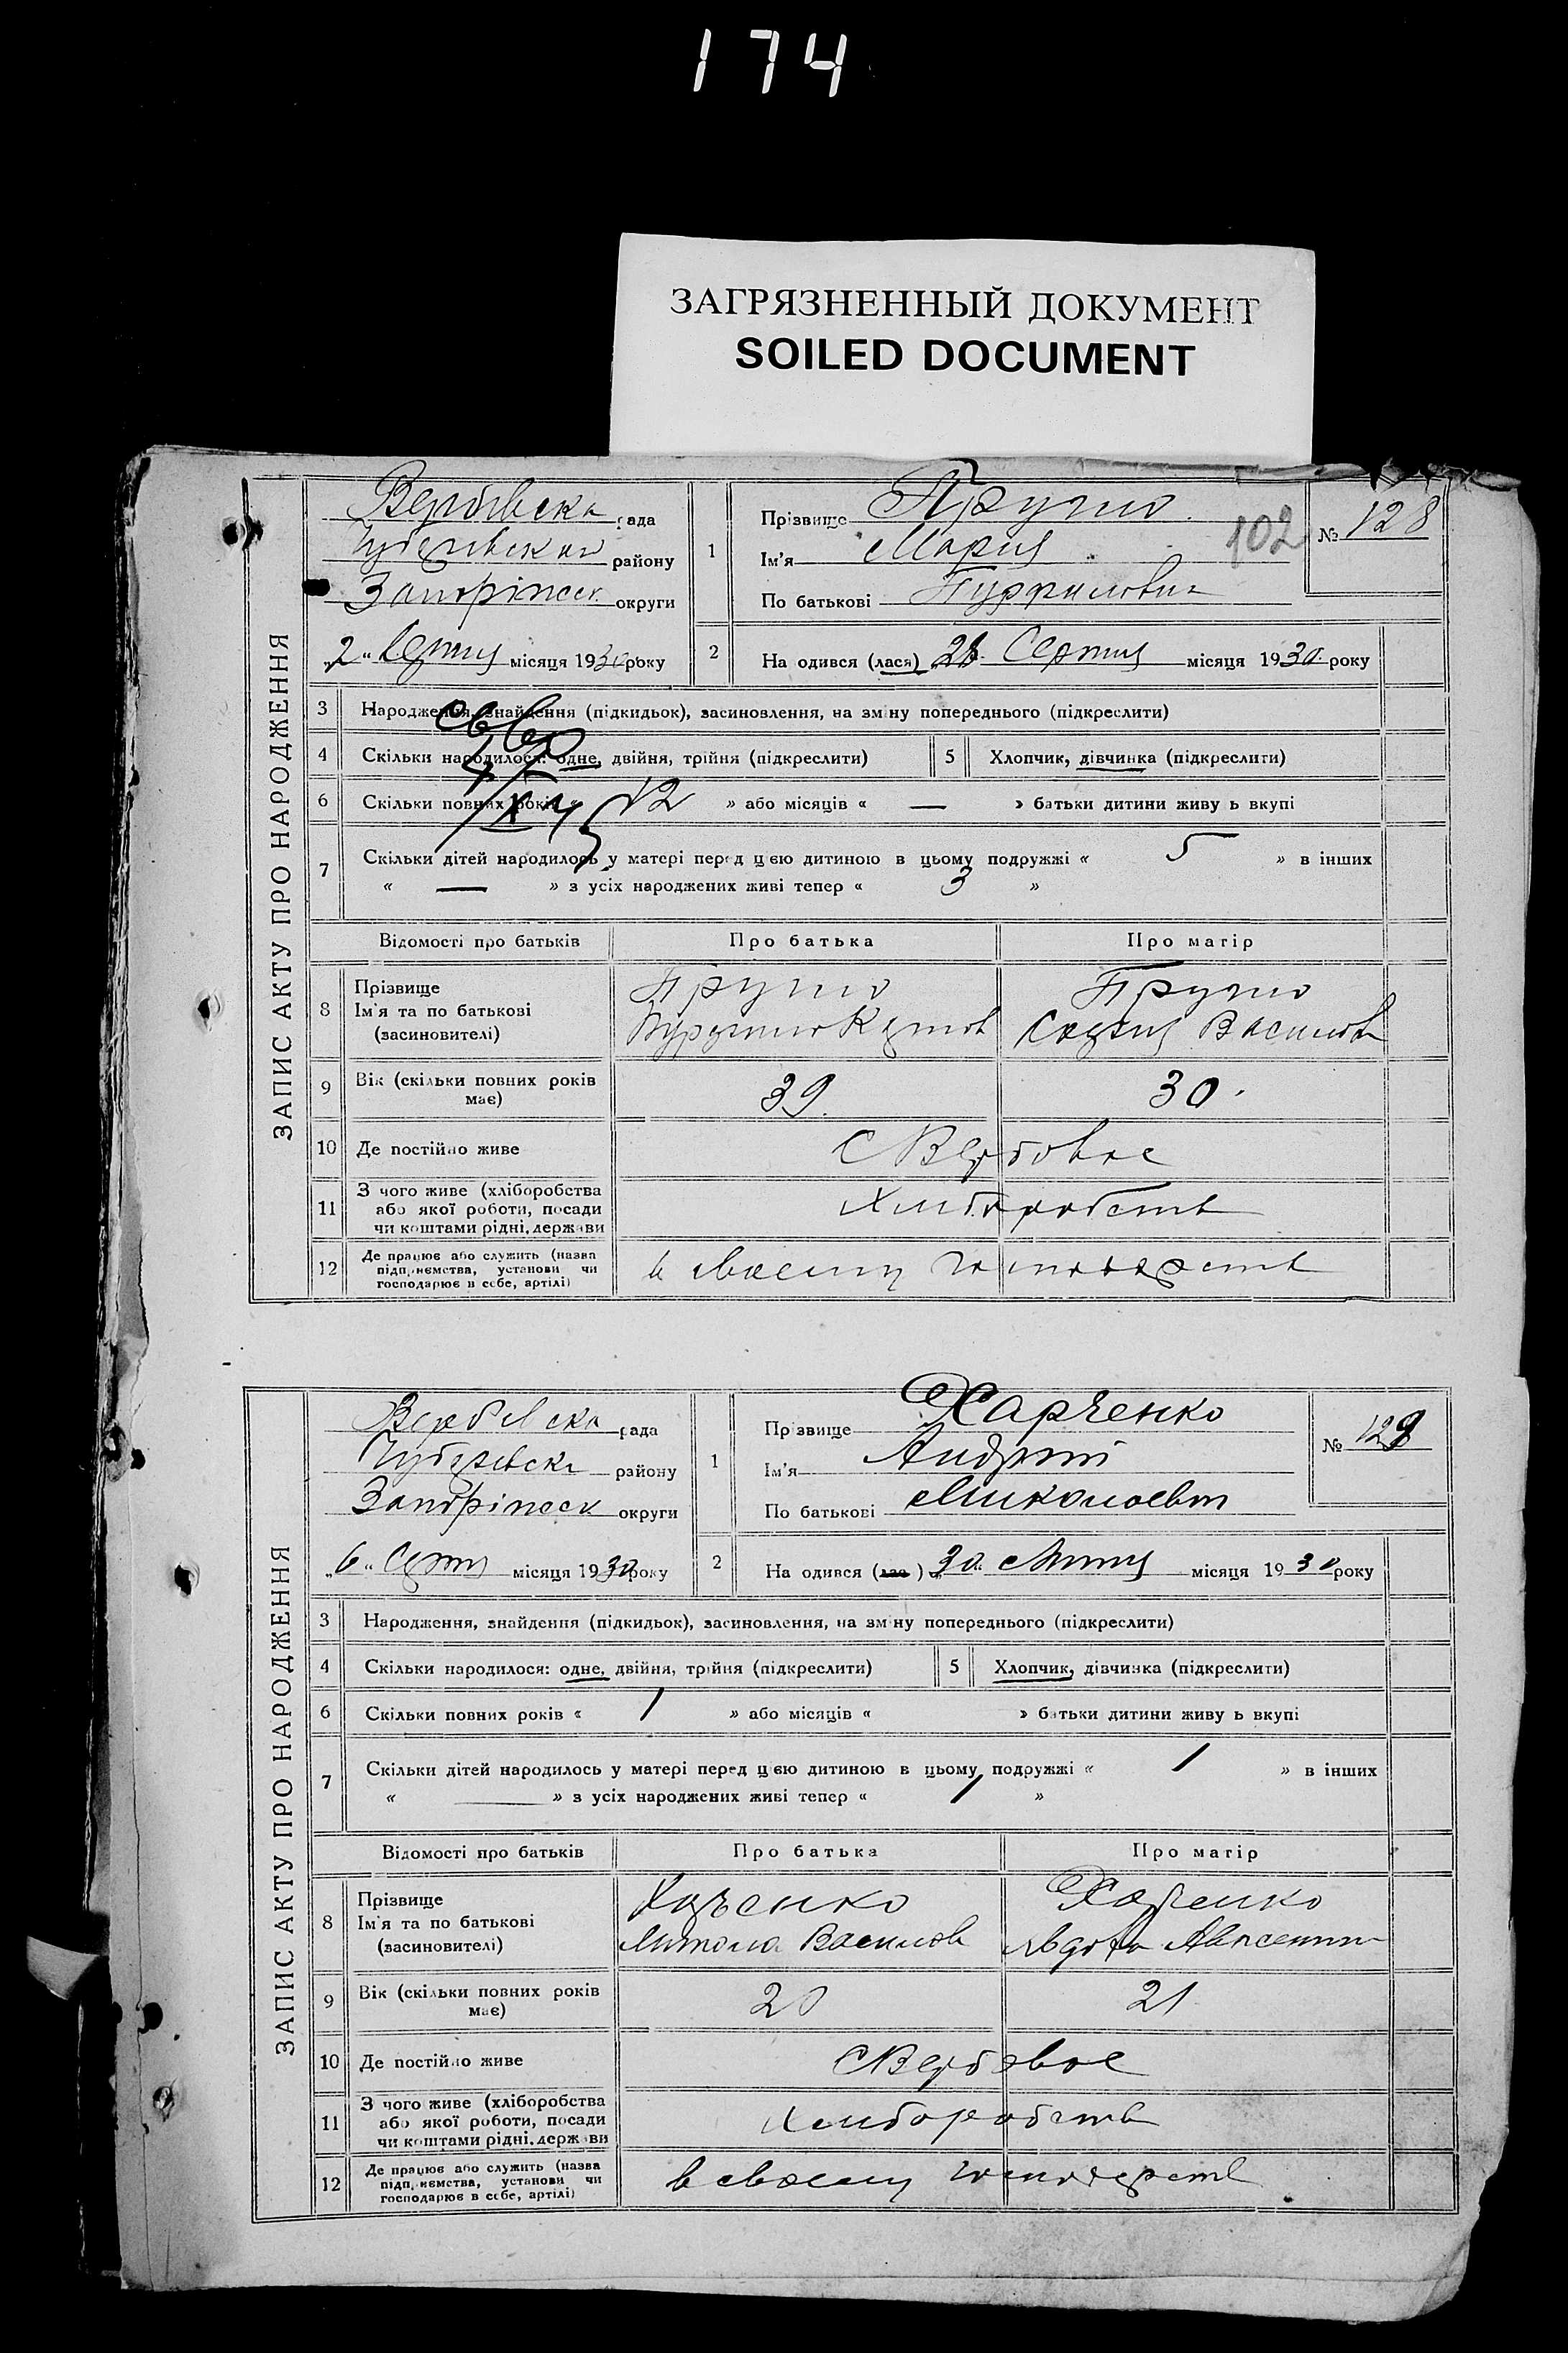 174
ЗАГРЯЗНЕННЫЙ ДОКУМЕНТ
SOILED DOCUMENT
ЗАПИС АКТУ ПРО НАРОДЖЕННЯ
Вербівска рада
району
Запоріжск. округи
„2“ Серпня місяця 1930 року
1
Прізвище
Ім'я Мария
По батькові
102
№ 128
2
На одився (лася) Серпня місяця 1930 року
3 Народження, знайдення (підкидьок), засиновлення, на зміну попереднього (підкреслити)
4 Скільки народилося: одне, двійня, трійня (підкреслити)
5 Хлопчик, дівчинка (підкреслити)
6 Скільки повних років « 12 » або місяців « — » батьки дитини живу ь вкупі
7 Скільки дітей народилось у матері перед цією дитиною в цьому подружжі « 5 » в інших
« — » з усіх народжених живі тепер « 3 »
Відомості про батьків Про батька Про матір
8 Прізвище
Ім'я та по батькові
(засиновителі)
9 Вік (скільки повних років має) 39. 30.
10 Де постійно живе С Вербовое
11 З чого живе (хліборобства
або якої роботи, посади
чи коштами рідні, держави
Хлиборобств
12 Де працює або служить (назва
підприємства, установи чи
господарює в себе, артілі)
в своему господарств
ЗАПИС АКТУ ПРО НАРОДЖЕННЯ
Вербівска рада
району
Запоріжск округи
„6“ Серпня місяця 1930 року
1
Прізвище Харченко
Ім'я Андрій
По батькові Миколаевич
№ 129
2
На одився (лас ) „30“ Липня місяця 1930 року
3 Народження, знайдення (підкидьок), засиновлення, на зміну попереднього (підкреслити)
4 Скільки народилося: одне, двійня, трійня (підкреслити)
5 Хлопчик, дівчинка (підкреслити)
6 Скільки повних років « 1 » або місяців « » батьки дитини живу ь вкупі
7 Скільки дітей народилось у матері перед цією дитиною в цьому подружжі « 1 » в інших
« — » з усіх народжених живі тепер « 1 »
Відомості про батьків Про батька Про матір
8 Прізвище
Ім'я та по батькові
(засиновителі)
Харченко Харченко
Микола Васильов Явдоха
9 Вік (скільки повних років має) 20 21
10 Де постійно живе С Вербовое
11 З чого живе (хліборобства
або якої роботи, посади
чи коштами рідні, держави
Хлиборобств
12 Де працює або служить (назва
підприємства, установи чи
господарює в себе, артілі)
в своему господарств